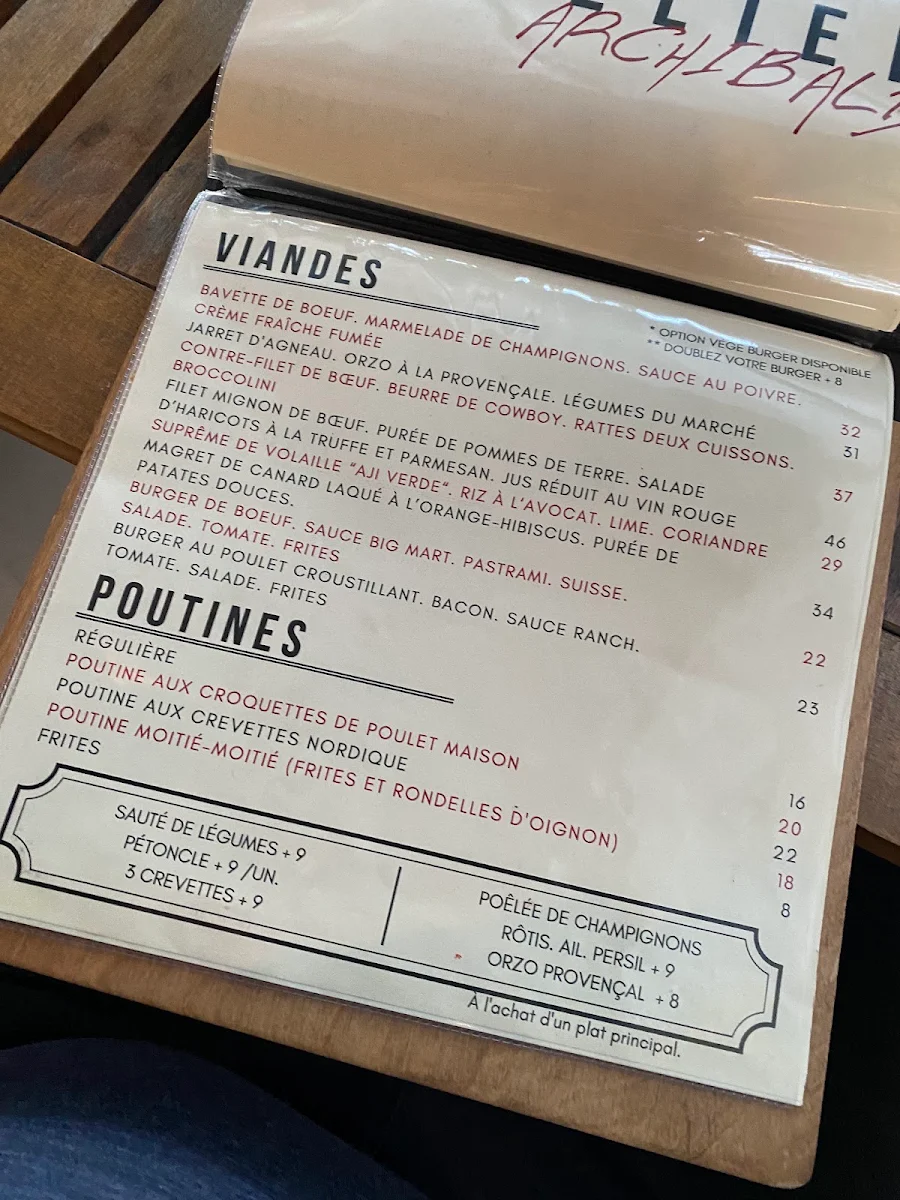 ARCHIBALD
VIANDES
* OPTION VEGE BURGER DISPONIBLE
** DOUBLEZ VOTRE BURGER + 8
BAVETTE DE BOEUF. MARMELADE DE CHAMPIGNONS. SAUCE AU POIVRE.
CRÈME FRAÎCHE FUMÉE 32
JARRET D'AGNEAU. ORZO À LA PROVENÇALE. LÉGUMES DU MARCHÉ 31
CONTRE-FILET DE BŒUF. BEURRE DE COWBOY. RATTES DEUX CUISSONS.
BROCCOLINI 37
FILET MIGNON DE BŒUF. PURÉE DE POMMES DE TERRE. SALADE
D'HARICOTS À LA TRUFFE ET PARMESAN. JUS RÉDUIT AU VIN ROUGE 46
SUPRÊME DE VOLAILLE "AJI VERDE". RIZ À L'AVOCAT. LIME. CORIANDRE 29
MAGRET DE CANARD LAQUÉ À L'ORANGE-HIBISCUS. PURÉE DE
PATATES DOUCES. 34
BURGER DE BOEUF. SAUCE BIG MART. PASTRAMI. SUISSE.
SALADE. TOMATE. FRITES 22
BURGER AU POULET CROUSTILLANT. BACON. SAUCE RANCH.
TOMATE. SALADE. FRITES 23
POUTINES
RÉGULIÈRE 16
POUTINE AUX CROQUETTES DE POULET MAISON 20
POUTINE AUX CREVETTES NORDIQUE 22
POUTINE MOITIÉ-MOITIÉ (FRITES ET RONDELLES D'OIGNON) 18
FRITES 8
SAUTÉ DE LÉGUMES + 9
PÉTONCLE + 9 /UN.
3 CREVETTES + 9
POÊLÉE DE CHAMPIGNONS
RÔTIS. AIL. PERSIL + 9
ORZO PROVENÇAL + 8
À l'achat d'un plat principal.